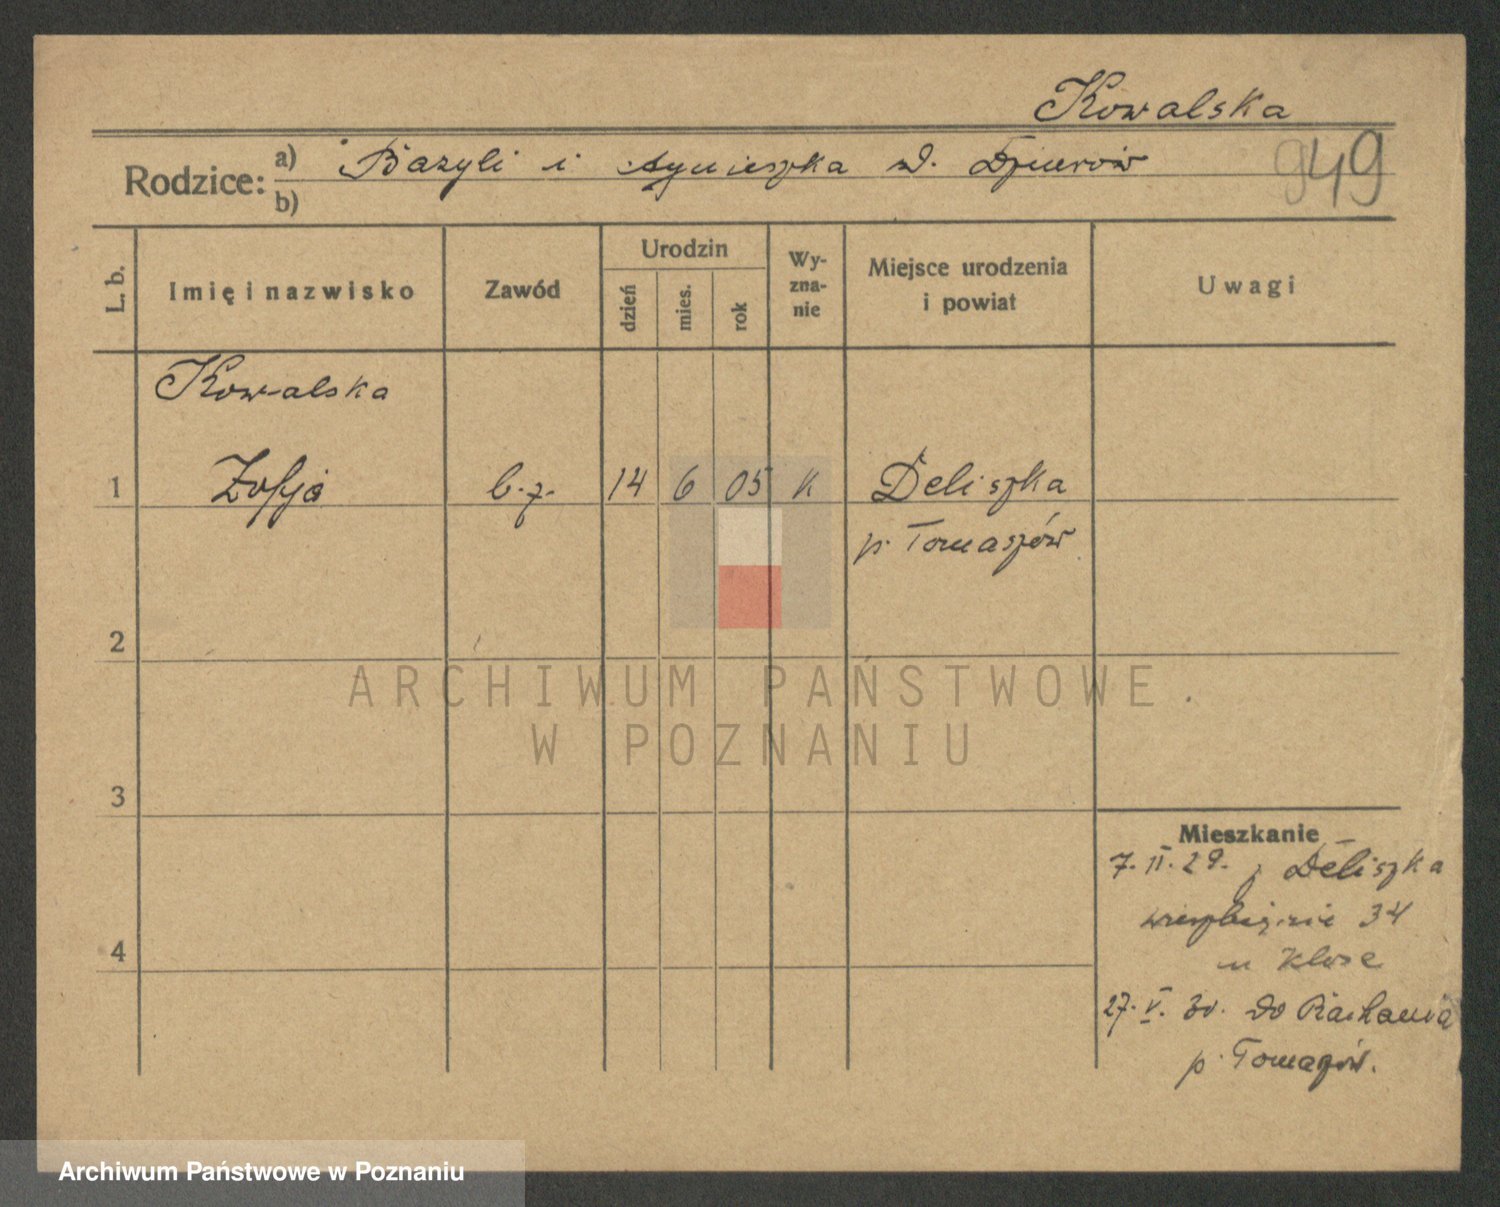 Kowalska
Rodzice: a) Bazyli i Agnieszka z d. Dziurów 949
b)
L. b. Imię i nazwisko Zawód Urodzin dzień mies. rok Wy-zna-nie Miejsce urodzenia i powiat Uwagi
Kowalska
1 Zofja b. z. 14 6 05 K Deliszka
p. Tomaszów
2
ARCHIWUM PAŃSTWOWE
W POZNANIU
3
Mieszkanie
7. II. 29. z Deliszka
34
4
u Klose
27. V. 30. do Rachania
p. Tomaszów.
Archiwum Państwowe w Poznaniu